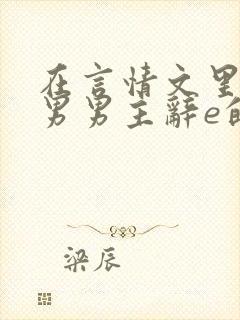 在言情文里
男男主辞e的
梁辰